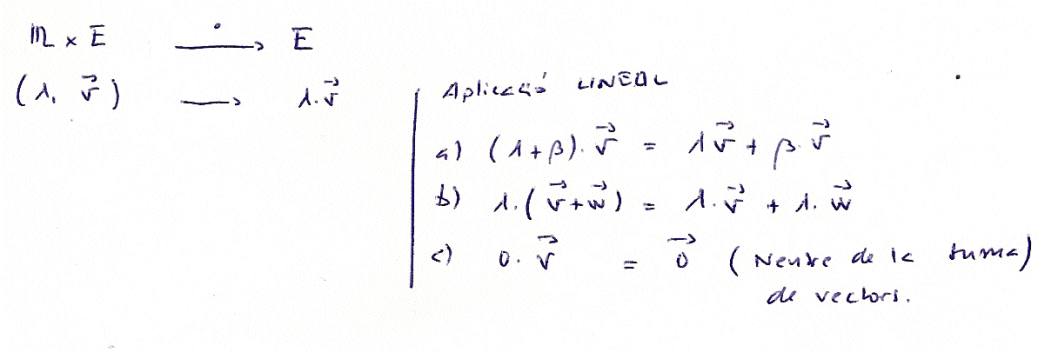 ℝ × E —·→ E
(λ, v⃗) → λ·v⃗
Aplicació LINEAL
a) (λ+β)·v⃗ = λv⃗ + β·v⃗
b) λ·(v⃗+w⃗) = λ·v⃗ + λ·w⃗
c) 0·v⃗ = 0⃗ (Neutre de la suma)
de vectors.